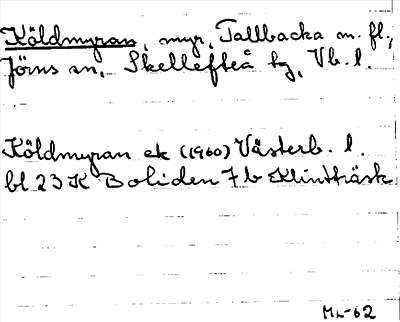 Köldmyran, myr, Tallbacka m. fl.,
Jörns sn, Skellefteå tg, Vb. l.
Köldmyran ek (1960) Västerb. l.
bl 23 K Boliden 7 b Klintträsk
ML-62